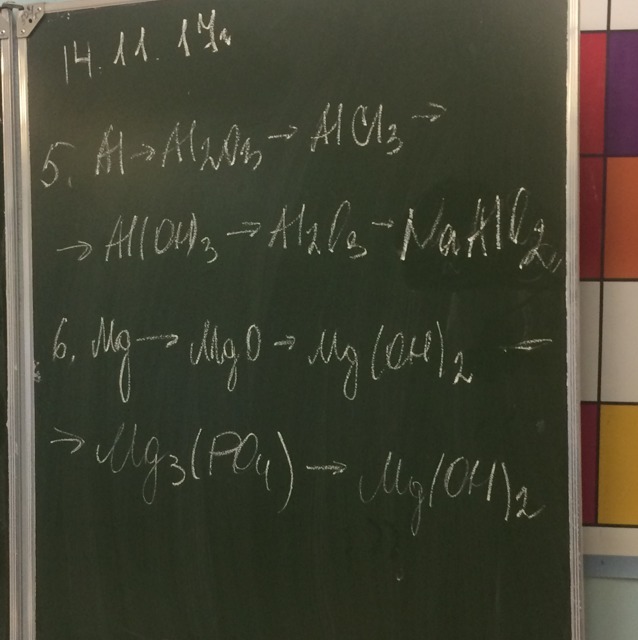 14.11.17г.
5. Al → Al₂O₃ → AlCl₃ →
→ Al(OH)₃ → Al₂O₃ → NaAlO₂,
6. Mg → MgO → Mg(OH)₂ —
→ Mg₃(PO₄) → Mg(OH)₂